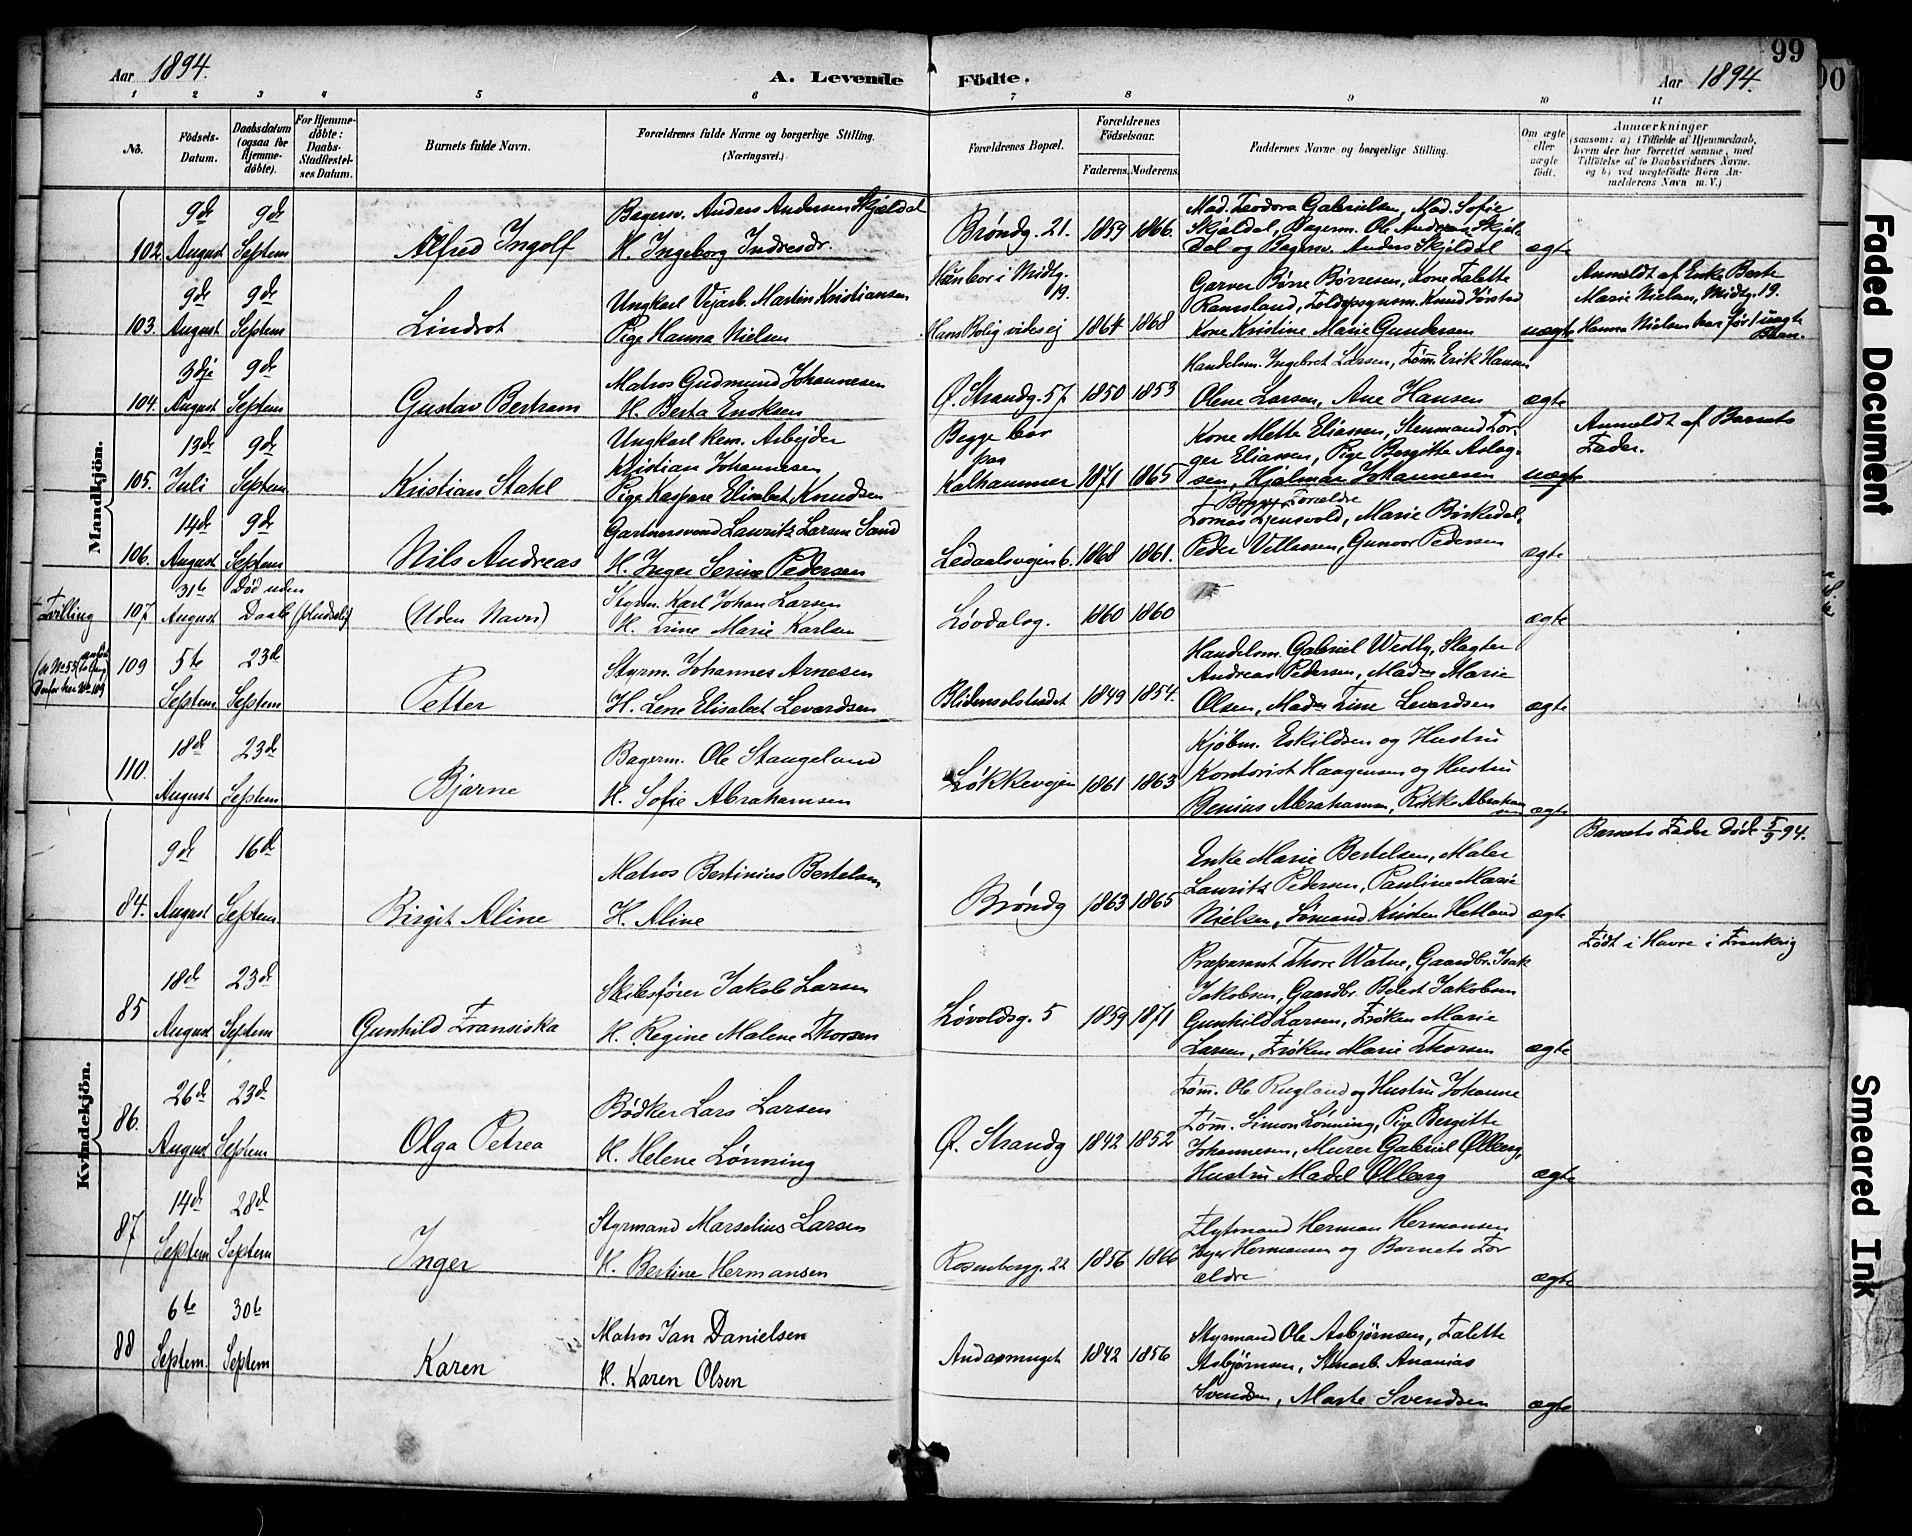 99
Aar 1894.
A. Levende Födte.
Aar 1894.
1 2 3 4 5 6 7 8 9 10 11
No.
Födsels-Datum.
Daabsdatum (ogsaa for Hjemme-döbte).
For Hjemme-döbte: Daabs-Stadfæstel-ses Datum.
Barnets fulde Navn.
Forældrenes fulde Navne og borgerlige Stilling. (Næringsvei.)
Forældrenes Bopæl.
Forældrenes Födselsaar.
Faderens. Moderens.
Faddernes Navne og borgerlige Stilling.
Om ægte eller uægte födt.
Anmærkninger
(saasom: a) i Tilfælde af Hjemmedaab, hvem der har forrettet samme, med Tilföielse af to Daabsvidners Navne. og b) ved uægtefödte Börn An-melderens Navn m. V.)
Mandkjön.
102. 9de August 9de Septem
Alfred Ingolf
Bagersv. Anders Andersen Skjældal
H. Ingeborg Indresdr.
Brøndg. 21. 1859 1866.
Mad. Teodora Gabrielsen, Mad. Sofie
Skjøldal, Bagerm. Ole Andreas Skjøl-
dal og Bagersv. Anders Skjøldal
ægte
103. 9de August 9de Septem
Lindrot
Ungkarl Vejarb. Martin Kristiansen
Pige Hanna Nielsen
Hun bor i Midtg. 19.
Hans Bolig vides ej 1864 1868
Garver Børre Børresen, Kone Talette
Ramsland, Toldopsynsm. Knud Jørstad
Kone Kristine Marie Gundersen
uægte
Anmeldt af Enke Berte
Marie Nielsen, Midtg. 19.
Hanna Nielsen har født uægte
Barn.
104. 3dje August 9de Septem
Gustav Bertram
Matros Gudmund Johannesen
H. Berta Enoksen
Ø. Strandg. 57 1850 1853
Handelsm. Ingebret Larsen, Tømm. Erik Hansen
Olene Larsen, Ane Hansen
ægte
105. 13de Juli 9de Septem
Kristian Stahl
Ungkarl kem. Arbejder
Kristian Johannesen
Pige Kaspare Elisabet Knudsen
Begge bor
paa
Kalhammer 1871 1865
Kone Mette Eliassen, Stenmand Tor-
ger Eliassen, Pige Bergitte Aslag-
sen, Hjalmar Johannesen
Begge Forældre
uægte
Anmeldt af Barnets
Fader.
106. 14de August 9de Septem
Nils Andreas
Gartnersvend Lauritz Larsen Sand
H. Inger Serine Pedersen
Ledaalsvejen 6. 1868 1861.
Tomas Tjensvold, Marie Birkedal,
Peder Villassen, Gunvor Pedersen
ægte
Tvilling
107 31te August Død uden Daab
(Uden Navn)
Styrm. Karl Johan Larsen
H. Trine Marie Karlsen
Løvdalsg. 1860 1860
ægte
109 5te Septem 23de Septem
Petter
Styrm. Johannes Arnesen
H. Lene Elisabet Levardsen
Blidensolstrædet 1849 1854.
Handelsm. Gabriel Westby, Slagter
Andreas Pedersen, Madm Marie
Olsen, Madm Trine Levardsen
ægte
110. 18de August 23de Septem
Bjarne
Bagerm. Ole Stangeland
H. Sofie Abrahamsen
Løkkevejen 1861 1863
Kjøbm. Eskildsen og Hustru
Kontorist Haagensen og Hustru
Benius Abrahamsen, Rikke Abraham
sen
ægte
Kvindekjön.
84. 9de August 16de Septem
Birgit Aline
Matros Bertinius Bertelsen
H. Aline
Brøndg 1863 1865
Enke Marie Bertelsen, Maler
Lauritz Pedersen, Pauline Marie
Nielsen, Sømand Kristen Hetland
ægte
Barnets Fader døde 5/9 94.
85 18de August 23de Septem
Gunhild Fransiska
Skibsfører Jakob Larsen
H. Regine Malene Thorsen
Løvoldsg. 5 1859 1871
Præparant Thore Watne, Gaardbr. Isak
Jakobsen, Gaardbr. Beret Jakobsen
Gunhild Larsen, Frøken Marie
Larsen, Frøken Marie Thorsen
ægte
Født i Havre i Frankrig
86. 26de August 23de Septem
Olga Petrea
Bødker Lars Larsen
H. Helene Lønning
Ø. Strandg 1842 1852
Tømm. Ole Rugland og Hustru Johanne
Tømm. Simon Lønning, Pige Bergitte
Johannesen, Murer Gabriel Ølberg,
Hustru Madel Ølberg
ægte
87 14de Septem 28de Septem
Inger
Styrmand Marselius Larsen
H. Bertine Hermansen
Rosenbergg. 22 1856 1866
Flytmand Herman Hermansen
Inger Hermansen og Barnets For
ældre
ægte
88 6te Septem. 30te Septem
Karen
Matros Jan Danielsen
H. Karen Olsen
Andasmuget 1842 1856
Styrmand Ole Asbjørnsen, Talette
Asbjørnsen, Stuarb. Ananias
Svendsen, Marte Svendsen
ægte
Faded Document
Smeared Ink